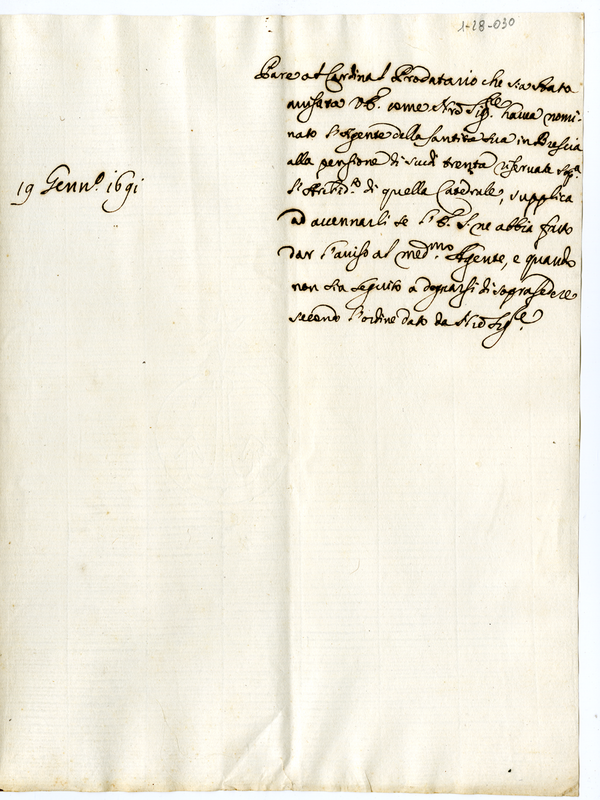 1-28-030
Pare al Cardinal Prodatario che sia stata
avvisata V.E. come Nro Sig.re havea nomi-
nato l'Agente della Santità Sua in Brescia
alla pensione di scudi trenta riservata
l'Archid.to di quella Catedrale, supplica
19 Genn.o 1691
ad accennarli se V.E. ne abbia fatto
dar l'aviso al med.mo Agente, e quando
non sia seguito a degnarsi di soprasedere
secondo l'ordine dato da Nro Sig.re